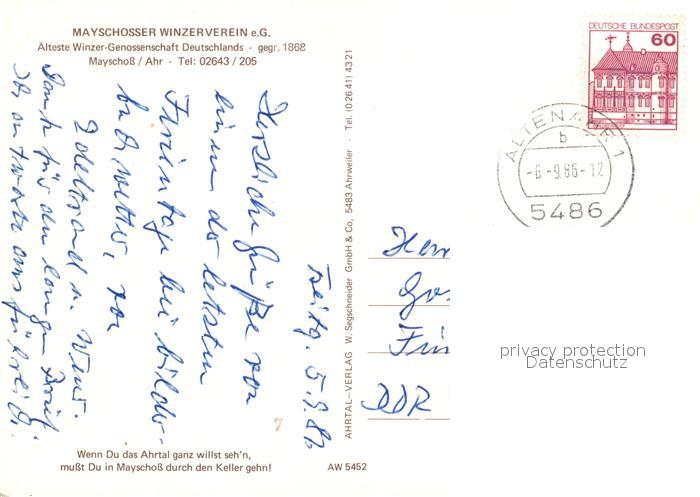 MAYSCHOSSER WINZERVEREIN e.G.
Älteste Winzer-Genossenschaft Deutschlands · gegr. 1868
Mayschoß / Ahr · Tel: 02643 / 205
Freitg. 5.9.86
Herzliche Grüße von
einem der letzten
Ferientage bei bilder-
buchwetter, von
Edeltraud u. Wern.
Dank für den langen Brief,
Ich antworte ausführlich.
Wenn Du das Ahrtal ganz willst seh'n,
mußt Du in Mayschoß durch den Keller gehn!
AHRTAL-VERLAG W. Segschneider GmbH & Co, 5483 Ahrweiler · Tel. (02641) 4321
AW 5452
7
DEUTSCHE BUNDESPOST
60
ALTENAHR 1
b
-6.-9.86-12
5486
Herrn
DDR
privacy protection
Datenschutz